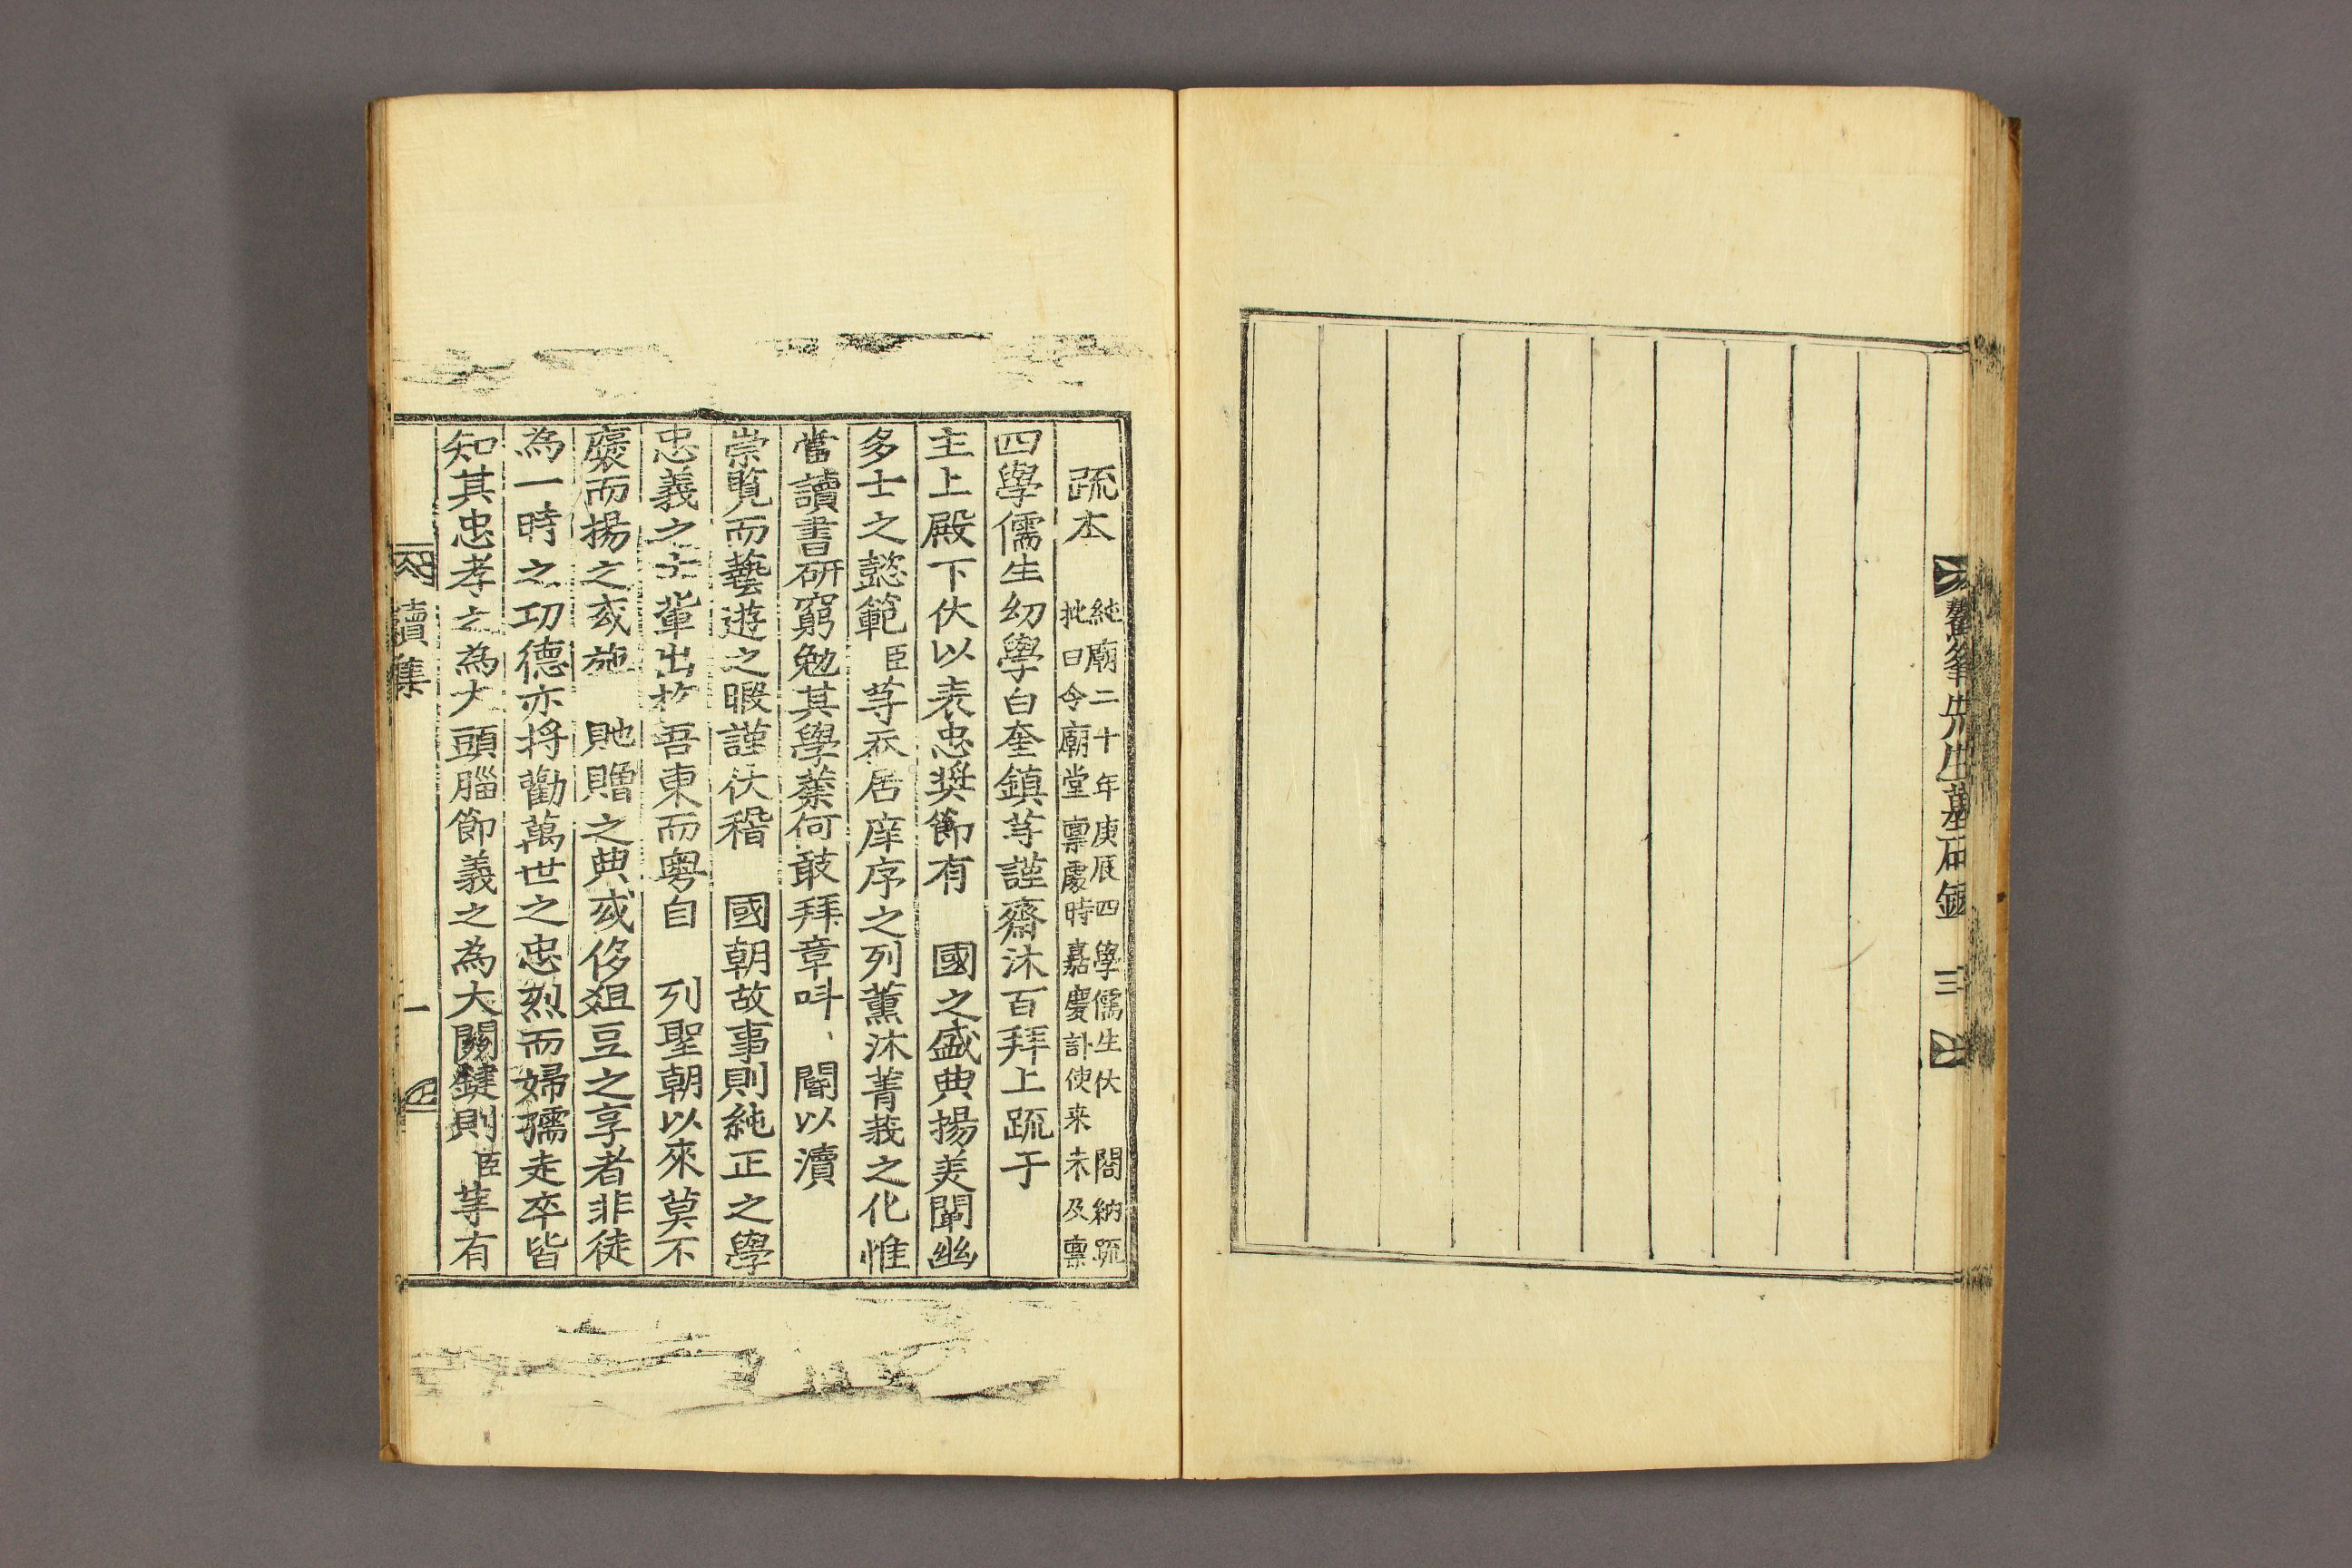 鰲峯先生墓碣銘 三
疏本 純廟二十年庚辰四學儒生伏 閤納疏
批曰令廟堂稟處時嘉慶訃使来未及稟
四學儒生幼學白奎鎮等謹齋沐百拜上疏于
主上殿下伏以表忠奨節有 國之盛典揚美闡幽
多士之懿範臣等忝居庠序之列薰沐菁莪之化惟
當讀書研窮勉其學業何敢拜章呌閽以瀆
崇覧而藝遊之暇謹伏稽 國朝故事則純正之學
忠義之士輩出於吾東而粤自 列聖朝以來莫不
褒而揚之或施 貤贈之典或侈俎豆之享者非徒
為一時之功德亦将勸萬世之忠烈而婦孺走卒皆
知其忠孝之為大頭腦節義之為大關鍵則臣等有
續集 一